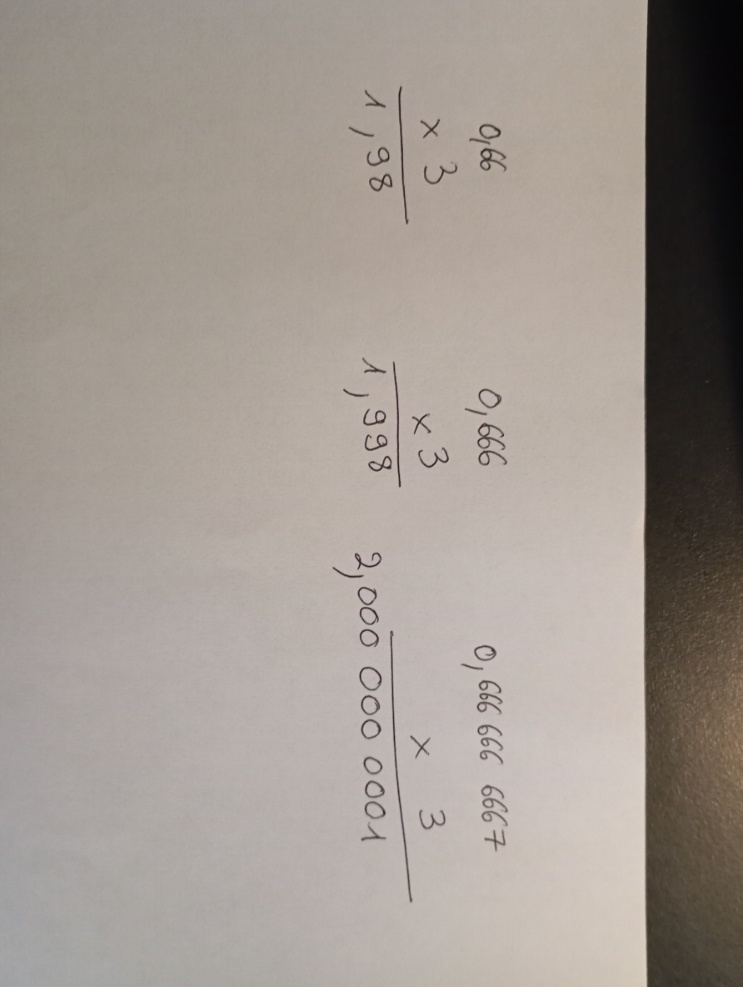 0,66
x 3
1,98
0,666
x 3
1,998
0,666 666 6667
x 3
2,000 000 0001